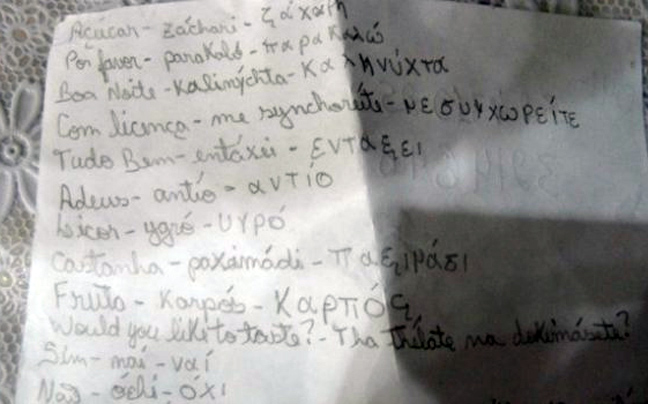 Açúcar - záchari - ζάχαρη
Por favor - parakaló - παρακαλώ
Boa Noite - Kaliníychta - Καληνύχτα
Com licença - me synchoreíte - με συγχωρείτε
Tudo Bem - entáxei - εντάξει
Adeus - antío - αντίο
Licor - ygró - υγρό
Castanha - paximádi - παξιμάδι
Fruto - Karpós - Καρπός
Would you like to taste? - Tha thélate na dokimásete?
Sim - nai - ναί
Não - óchi - όχι